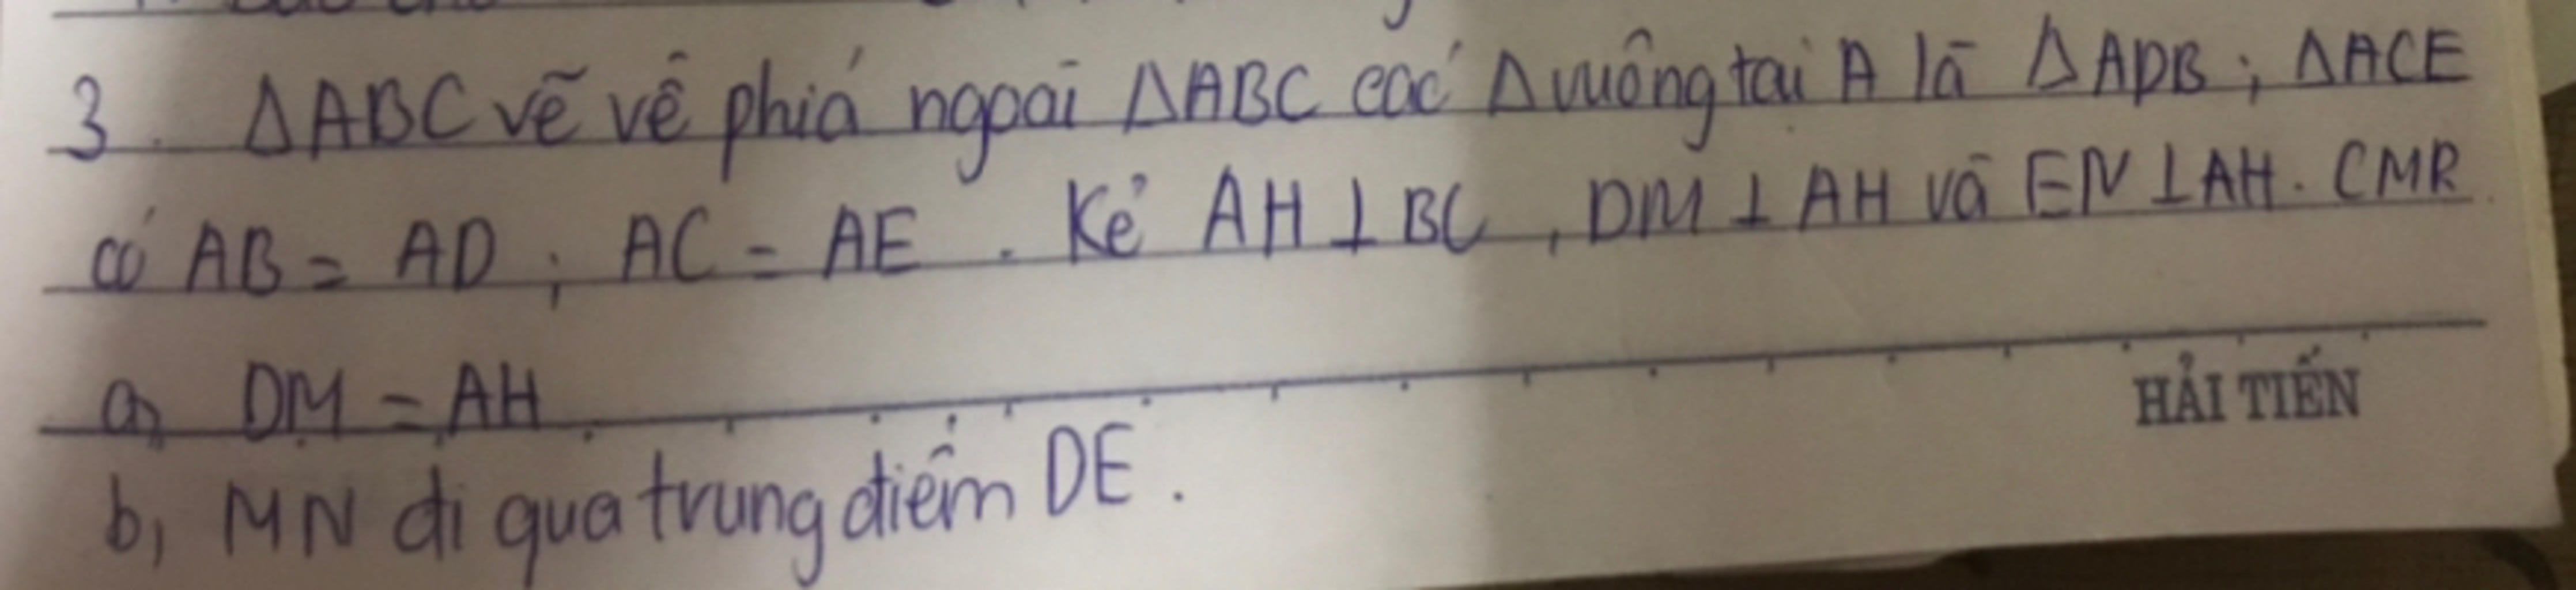 3. ΔABC vẽ về phiá ngoài ΔABC các Δ vuông tại A là ΔADB; ΔACE
có AB = AD; AC = AE. Kẻ AH ⊥ BC, DM ⊥ AH và EN ⊥ AH. CMR
a, DM = AH
HẢI TIẾN
b, MN đi qua trung điểm DE.